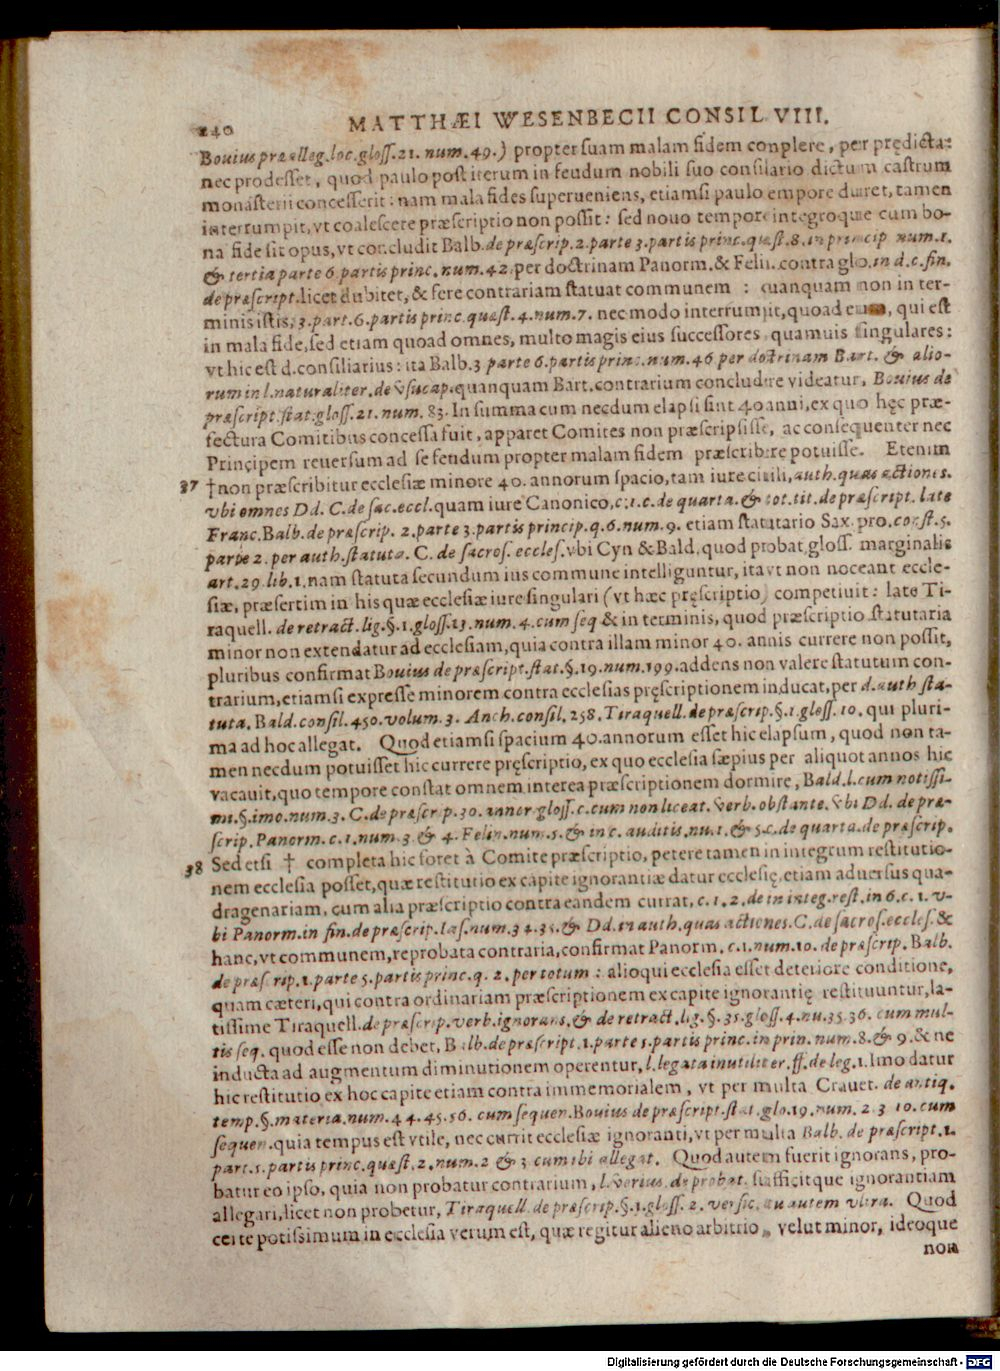 240 MATTHÆI WESENBECII CONSIL VIII.
Bovius præalleg. loc. gloss. 21. num. 49.) propter suam malam fidem conplere, per prędicta:
nec prodesset, quod paulo post iterum in feudum nobili suo consilario dictum castrum
monasterii concesserit: nam mala fides superueniens, etiamsi paulo tempore duret, tamen
interrumpit, vt coalescere præscriptio non possit: sed nouo tempore integroque cum bo-
na fide sit opus, vt concludit Balb. de præscrip. 2. parte 3. partis princ. quæst. 8. in princip num. 1.
& tertia parte 6. partis princ. num. 42. per doctrinam Panorm. & Felin. contra glo. in d. c. fin.
de præscript. licet dubitet, & fere contrariam statuat communem : quanquam non in ter-
minis istis, 3. part. 6. partis princ. quæst. 4. num. 7. nec modo interrumpit, quoad eum, qui est
in mala fide, sed etiam quoad omnes, multo magis eius successores, quamuis singulares:
vt hic est d. consiliarius: ita Balb. 3 parte 6. partis princ. num. 46 per doctrinam Bart. & alio-
rum in l. naturaliter. de vsucap. quanquam Bart. contrarium concludere videatur, Bouius de
præscript. stat. gloss. 21. num. 83. In summa cum necdum elapsi sint 40 anni, ex quo hęc præ-
fectura Comitibus concessa fuit, apparet Comites non præscripsisse, ac consequenter nec
Principem reuersum ad se feudum propter malam fidem præscribere potuisse. Etenim
37 † non præscribitur ecclesiæ minore 40. annorum spacio, tam iure ciuili, auth. quas actiones.
vbi omnes Dd. C. de sac. eccl. quam iure Canonico, c. 1. c. de quarta. & tot. tit. de præscript. late
Franc. Balb. de præscrip. 2. parte 3. partis princip. q. 6. num. 9. etiam statutario Sax. pro. const. 5.
parte 2. per auth. statuta. C. de sacros. eccles. vbi Cyn & Bald. quod probat gloss. marginalis
art. 29. lib. 1. nam statuta secundum ius commune intelliguntur, ita vt non noceant eccle-
siæ, præsertim in his quæ ecclesiæ iure singulari (vt hæc pręscriptio) competiuit: late Ti-
raquell. de retract. lig. §. 1. gloss. 13. num. 4. cum seq & in terminis, quod præscriptio statutaria
minor non extendatur ad ecclesiam, quia contra illam minor 40. annis currere non possit,
pluribus confirmat Bouius de præscript. stat. §. 19. num. 199. addens non valere statutum con-
trarium, etiamsi expresse minorem contra ecclesias pręscriptionem inducat, per d. auth sta-
tuta. Bald. consil. 450. volum. 3. Anch. consil. 258. Tiraquell. de præscrip. §. 1. gloss. 10. qui pluri-
ma ad hoc allegat. Quod etiamsi spacium 40. annorum esset hic elapsum, quod non ta-
men necdum potuisset hic currere pręscriptio, ex quo ecclesia sæpius per aliquot annos hic
vacauit, quo tempore constat omnem interea præscriptionem dormire, Bald. l. cum notissi-
mi. §. imo. num. 3. C. de præscrip. 30. annor. gloss. c. cum non liceat. verb. obstante. vbi Dd. de præ-
scrip. Panorm. c. 1. num. 3 & 4. Felin. num. 5. & in c. auditis. nu. 1. & 5. c. de quarta. de præscrip.
38 Sed etsi † completa hic foret à Comite præscriptio, petere tamen in integrum restitutio-
nem ecclesia posset, quæ restitutio ex capite ignorantiæ datur ecclesię, etiam aduersus qua-
dragenariam, cum alia præscriptio contra eandem currat, c. 1. 2. de in integ. rest. in 6. c. 1. v-
bi Panorm. in fin. de præscrip. Ias. num. 34. 35. & Dd. in auth. quas actiones. C. de sacros. eccles. &
hanc, vt communem, reprobata contraria, confirmat Panorm. c. 1. num. 10. de præscrip. Balb.
de præscrip. 1. parte 5. partis princ. q. 2. per totum : alioqui ecclesia esset deteriore conditione,
quam cæteri, qui contra ordinariam præscriptionem ex capite ignorantię restituuntur, la-
tissime Tiraquell. de præscrip. verb. ignorans. & de retract. lig. §. 35. gloss. 4. nu. 35. 36. cum mul-
tis seq. quod esse non debet, Balb. de præscript. 1. parte 5. partis princ. in prin. num. 8. & 9. & ne
inducta ad augmentum diminutionem operentur, l. legata inutiliter. ff. de leg. 1. Imo datur
hic restitutio ex hoc capite etiam contra immemorialem, vt per multa Crauet. de antiq.
temp. §. materia. num. 44. 45. 56. cum sequen. Bouius de præscript. stat. glo. 19. num. 2 3 10. cum
sequen. quia tempus est vtile, nec currit ecclesiæ ignoranti, vt per multa Balb. de præscript. 1.
part. 5. partis princ. quæst. 2. num. 2 & 3 cum ibi allegat. Quod autem fuerit ignorans, pro-
batur eo ipso, quia non probatur contrarium, l. verius. de probat. sufficitque ignorantiam
allegari, licet non probetur, Tiraquell. de præscrip. §. 1. gloss. 2. versic. tu autem vltra. Quod
certe potissimum in ecclesia verum est, quæ regitur alieno arbitrio, velut minor, ideoque
non
Digitalisierung gefördert durch die Deutsche Forschungsgemeinschaft - DFG